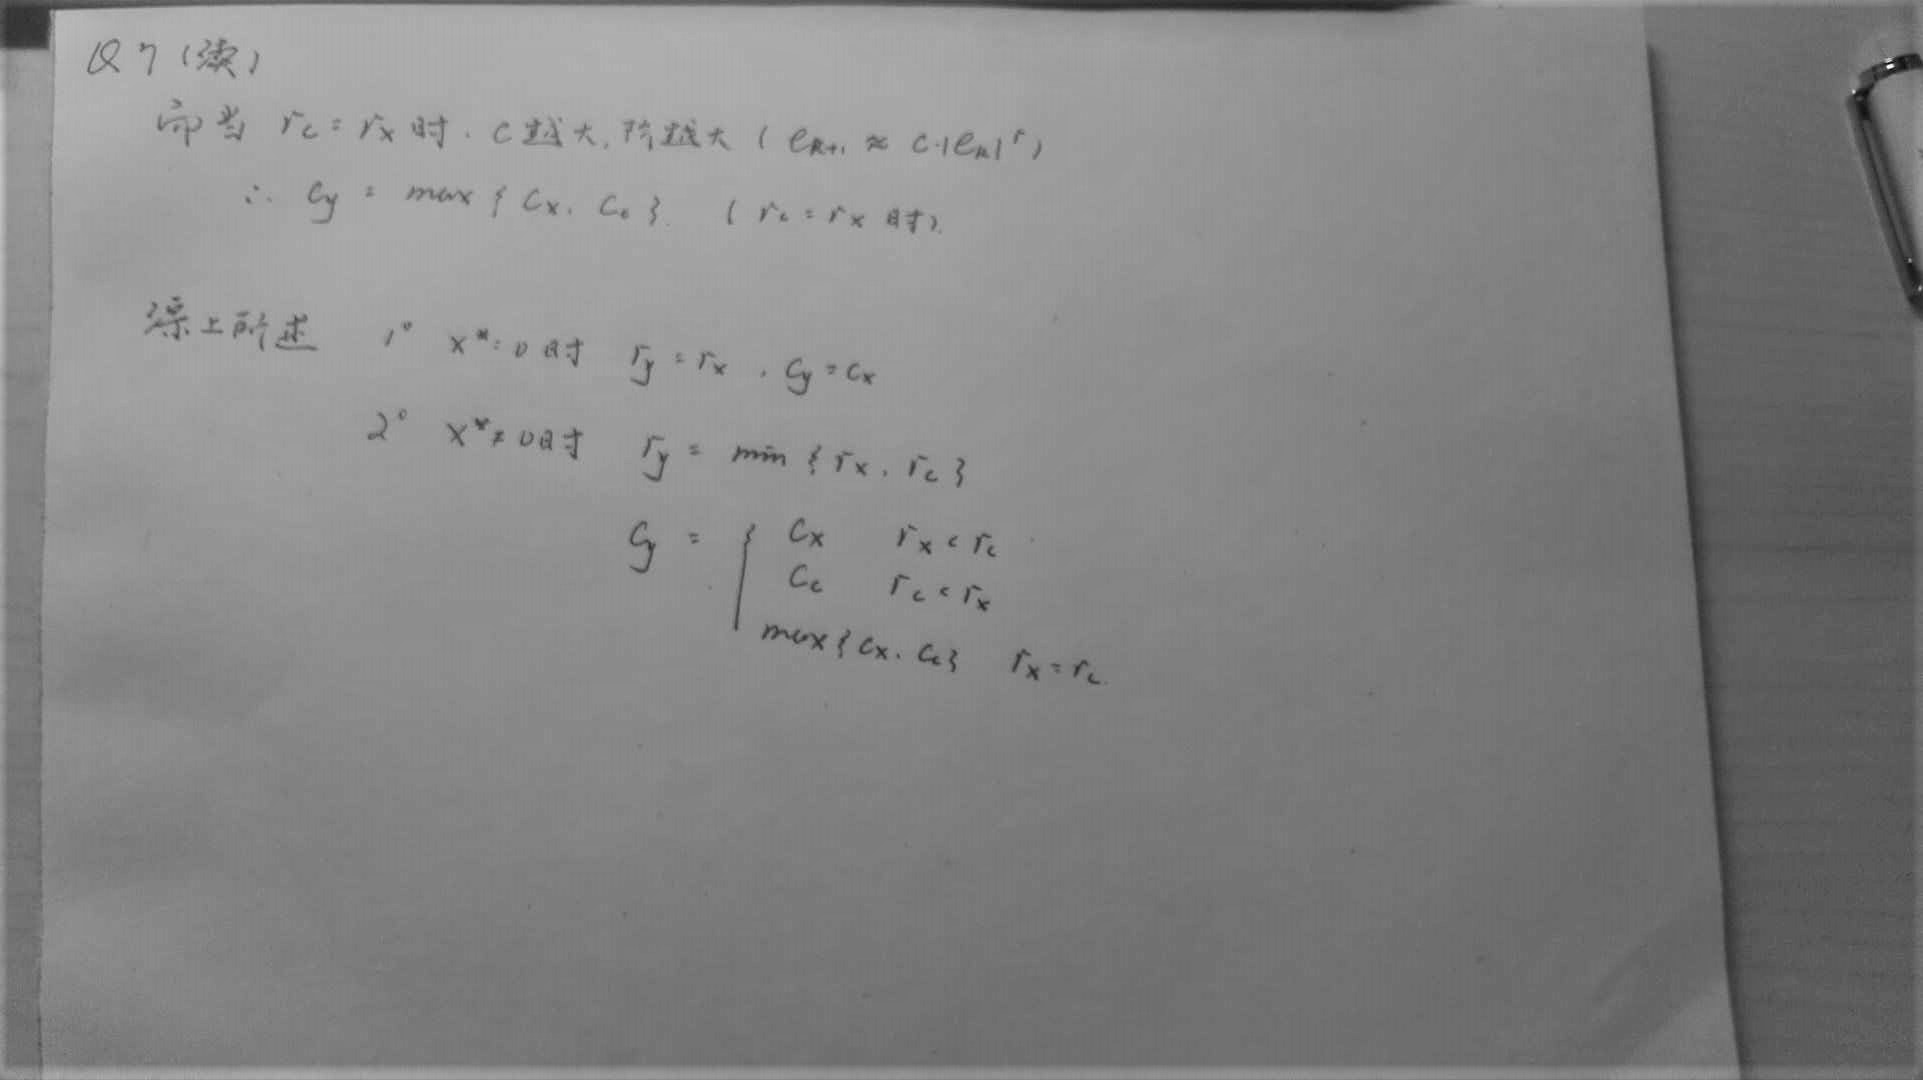 Q7 (续)
而当 r_c = r_x 时. C越大, 阶越大 ( e_{k+1} ≈ C·|e_k|^r )
∴ C_y = max { C_x, C_c }. ( r_c = r_x 时).
综上所述 1° x* = 0 时 r_y = r_x , C_y = C_x
2° x* ≠ 0 时 r_y = min { r_x, r_c }
C_y = { C_x r_x < r_c
C_c r_c < r_x
max { C_x, C_c } r_x = r_c.